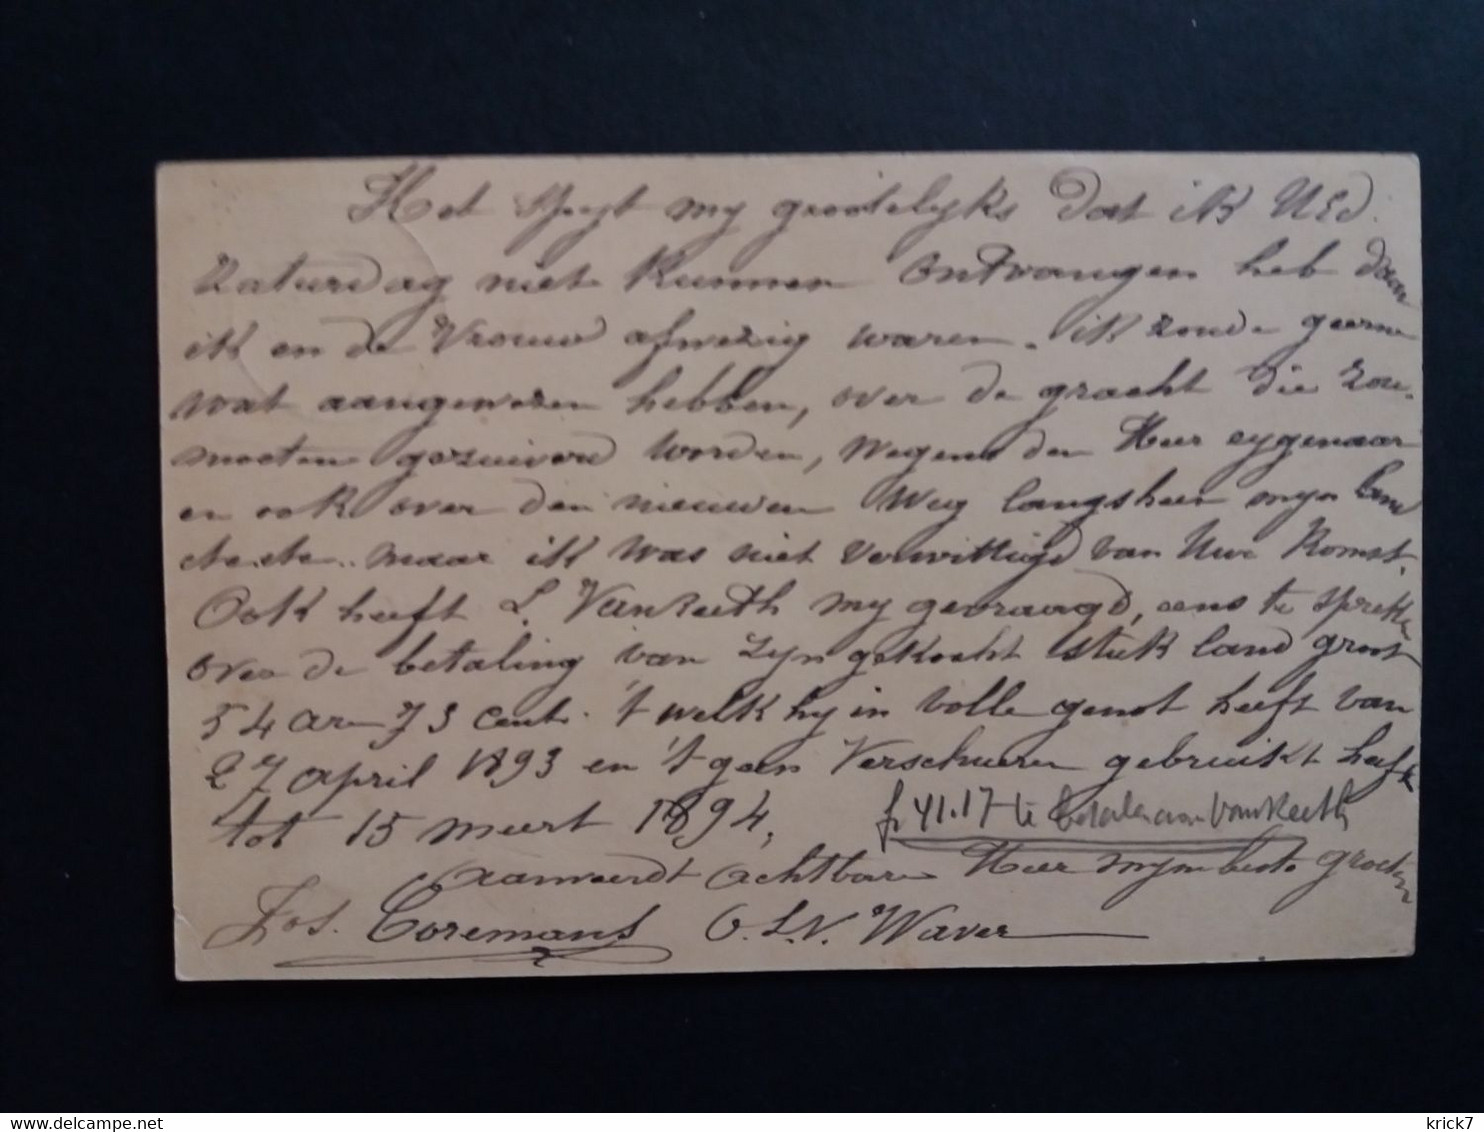 Het spyt my grootelyks dat ik UEd.
zaturdag niet kunnen ontvangen heb daar
ik en de Vrouw afwezig waren. ik zoude geerne
wat aangewezen hebben, over de gracht die zou
moeten gezuiverd worden, wegens den Heer eygenaar
en ook over den nieuwen weg langsheen myn land
maar ik was niet verwittigd van Uwe Komst.
Ook heeft L. VanReeth my gevraagd, eens te spreken
over de betaling van zyn gekocht stuk land groot
54 are 73 cent. 't welk hy in volle genot heeft van
27 april 1893 en 't geen Verschueren gebruikt heeft
tot 15 meert 1894.
fr 41.17 te betalen aan VanReeth
aanveerdt achtbare Heer myne beste groeten
Jos. Coremans O.L.V. Waver
delcampe.net
krick7